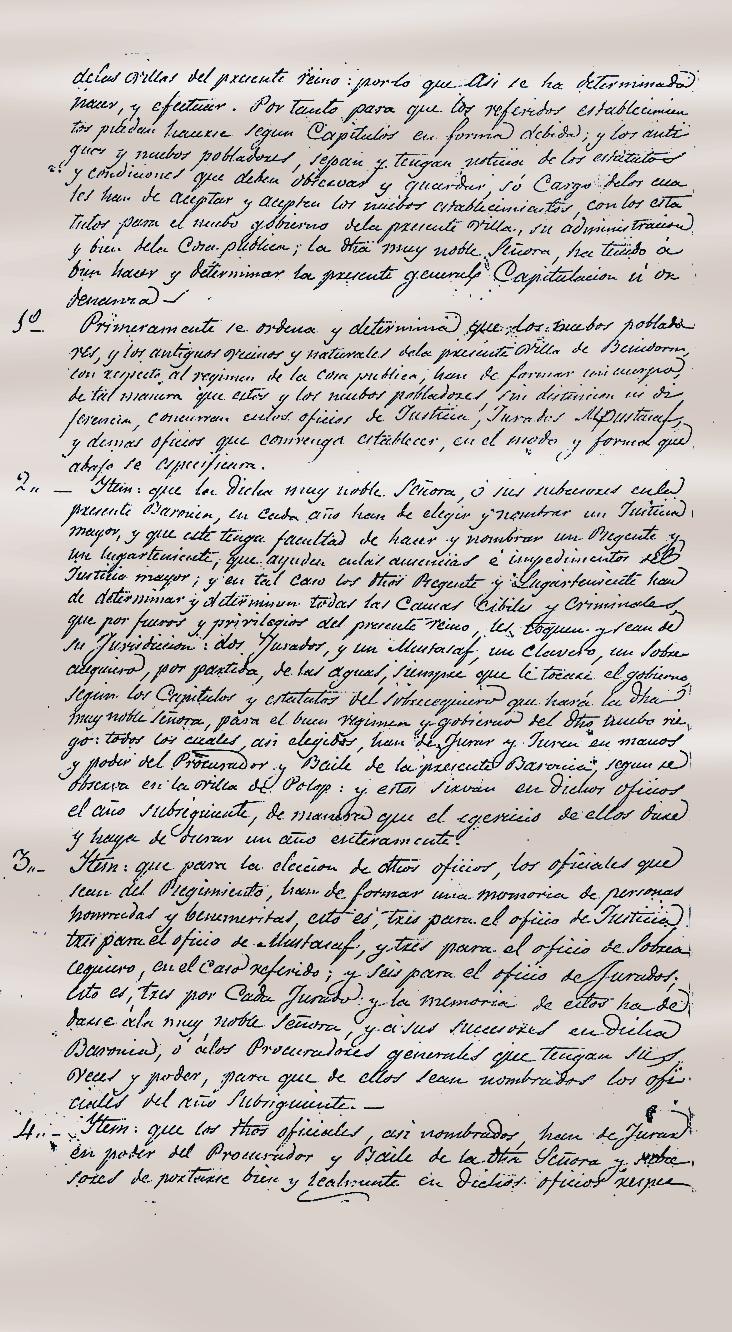 delas villas del presente reino: por lo que Asi se ha determinado
hacer, y efectuar. Por tanto para que los referidos establecimien
tos puedan hacerse segun Capitulos en forma debida; y los anti
guos y nuebos pobladores, sepan y tengan noticia de los estatutos
y condiciones que deben observar y guardar, só Cargo delos cua
les han de aceptar y acepten los nuebos establecimientos, con los esta
tutos para el nuebo gobierno dela presente Villa, su administracion
y bien dela Cosa publica; la dha muy noble Señora, ha tenido á
bien hacer y determinar la presente general Capitulacion ú or
denanza
1º Primeramente se ordena y determina que los nuebos poblado
res, y los antiguos vecinos y naturales dela presente Villa de Benidorm,
con respecto al regimen de la cosa publica, han de formar un cuerpo,
de tal manera que estos y los nuebos pobladores, sin distincion ni di
ferencia, concurran enlos oficios de Justicia, Jurados Mustasaf,
y demas oficios que convenga establecer, en el modo y forma que
abajo se especificara.
2,, — Item: que la dicha muy noble Señora, ó sus subcesores enla
presente Baronia, en cada año han de elegir y nombrar un Justicia
mayor, y que este tenga facultad de hacer y nombrar un Regente y
un lugarteniente, que ayuden enlas ausencias é impedimentos del
Justicia mayor; y en tal caso los dhos Regente y Lugarteniente han
de determinar y determinen todas las Causas Cibiles y Criminales,
que por fueros y privilegios del presente reino, les toquen y sean de
su Jurisdicion: dos Jurados, y un Mustasaf, un Clavero, un Sobre
cequiero, por partida, de las aguas, siempre que le tocare el gobierno
segun los Capitulos y estatutos del sobrecequiero que hará la dha
muy noble Señora, para el buen regimen y gobierno del dho nuebo rie
go: todos los cuales, asi elegidos, han de Jurar y Juren en manos
y poder del Procurador y Baile de la presente Baronia, segun se
observa en la villa de Polop: y estos sirvan en dichos oficios
el año subsiguiente, de manera que el egercicio de ellos dure
y haya de durar un año enteramente.
3,,- Item: que para la eleccion de dhos oficios, los oficiales que
sean del Regimiento, han de formar una memoria de personas
honrradas y benemeritas, esto es, tres para el oficio de Justicia,
tres para el oficio de Mustasaf, y tres para el oficio de Sobrea
cequiero, en el caso referido; y seis para el oficio de Jurados.
Esto es, tres por Cada Jurado: y la memoria de estos ha de
darse ála muy noble Señora, y á sus sucesores en dicha
Baronia, ó álos Procuradores generales que tengan sus
veces y poder, para que de ellos sean nombrados los ofi
ciales del año subsiguiente. —
4,,- Item: que los dhos oficiales, asi nombrados, han de Jurar
en poder del Procurador y Baile de la dha Señora y
sores de portarse bien y lealmente en dichos oficios respec